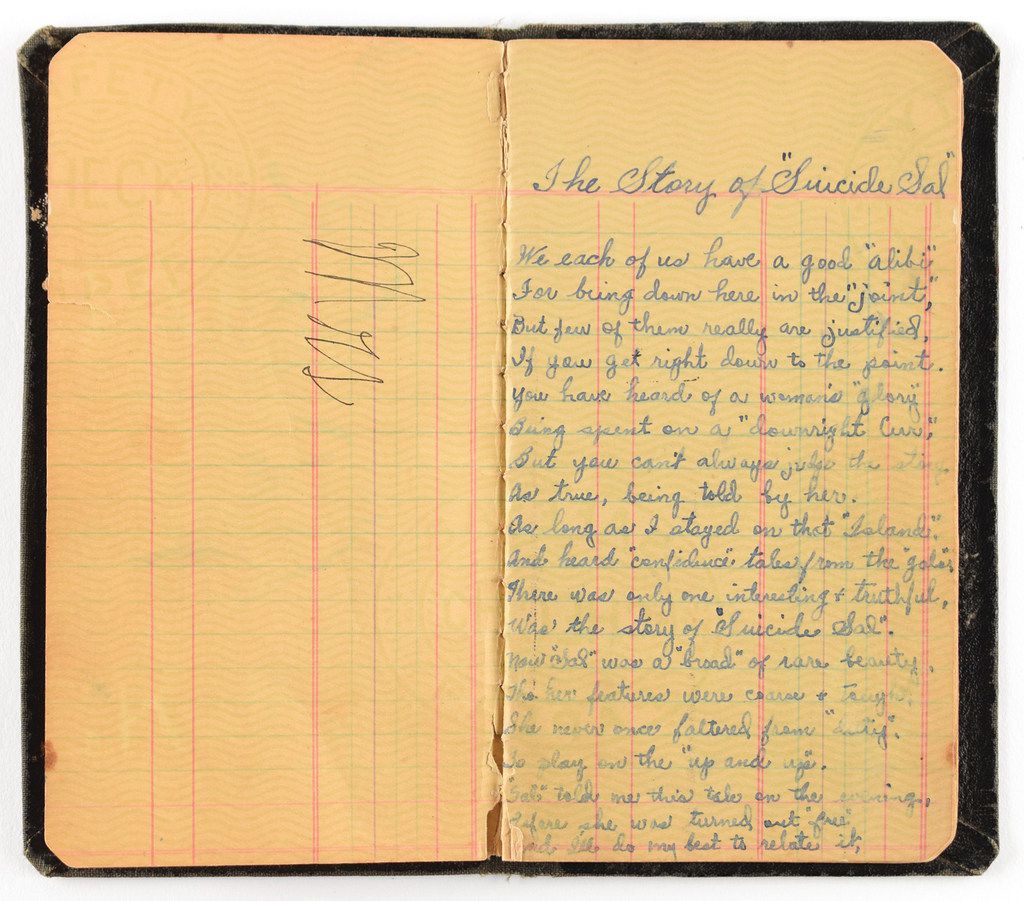 The Story of "Suicide Sal"
We each of us have a good "alibi"
For being down here in the "joint",
But few of them really are justified,
If you get right down to the point.
You have heard of a woman's "glory"
Being spent on a "downright Cur",
But you can't always judge the story
As true, being told by her.
As long as I stayed on that "Island",
And heard "confidence" tales from the "gals"
There was only one interesting & truthful,
Was the story of "Suicide Sal".
Now "Sal" was a "broad" of rare beauty,
Tho her features were coarse & tough,
She never once faltered from "duty",
To play on the "up and up".
"Sal" told me this tale on the evening,
Before she was turned out "free"
And I'll do my best to relate it,